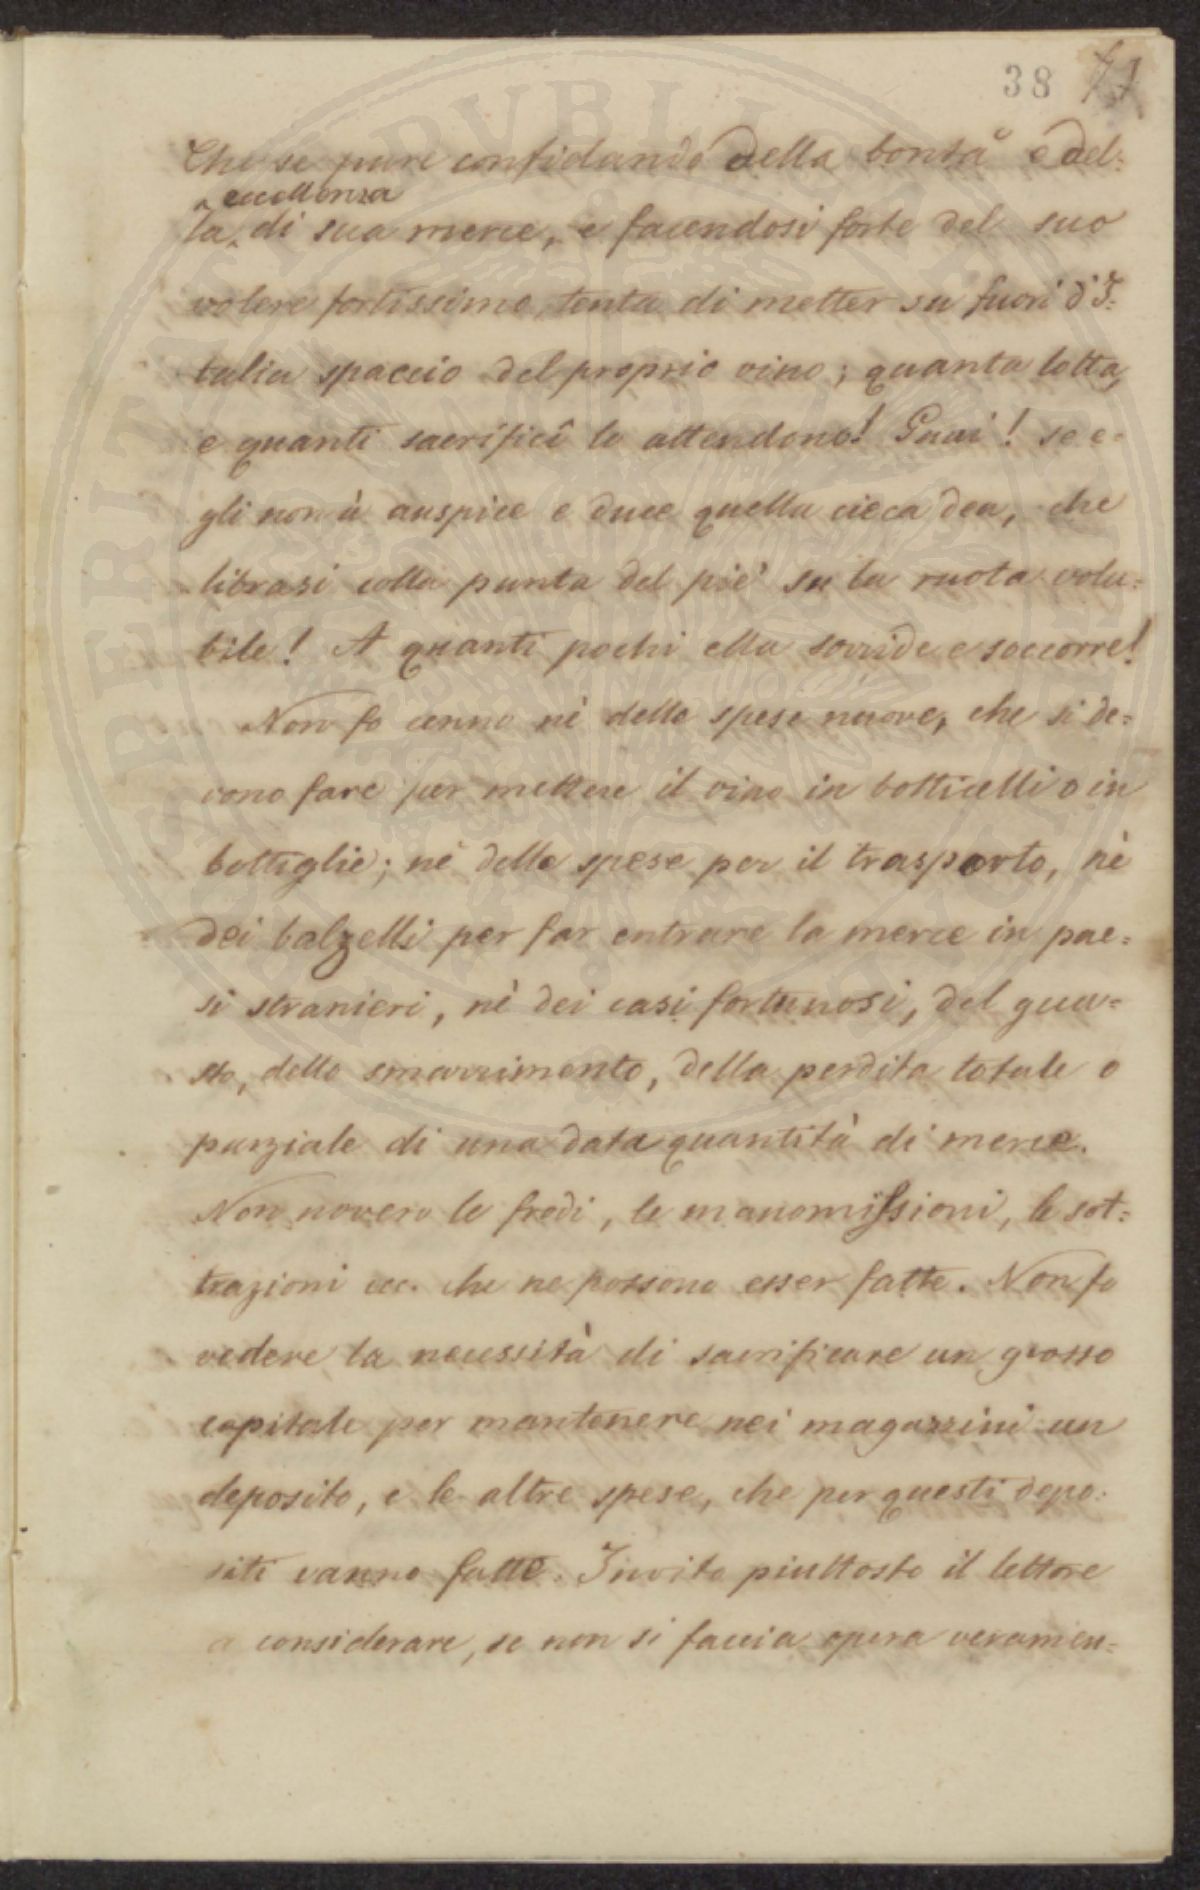 38
Che se pure confidando della bontà e del=
eccellenza
la di sua merce, e facendosi forte del suo
volere fortissimo, tenta di metter su fuori d'I=
talia spaccio del proprio vino; quanta lotta,
e quanti sacrificî lo attendono! Guai! se e=
gli non à auspice e duce quella cieca dea, che
librasi colla punta del piè su la ruota volu=
bile! A quanti pochi ella sorride e soccorre!
Non fo cenno nè delle spese nuove, che si de=
vono fare per mettere il vino in botticelli o in
bottiglie; nè delle spese per il trasporto, nè
dei balzelli per far entrare la merce in pae=
si stranieri, nè dei casi fortunosi, del gua=
sto, dello smarrimento, della perdita totale o
parziale di una data quantità di merce.
Non novero le frodi, le manomissioni, le sot=
trazioni ecc. che ne possono esser fatte. Non fo
vedere la necessità di sacrificare un grosso
capitale per mantenere nei magazzini un
deposito, e le altre spese, che per questi depo=
siti vanno fatte. Invito piuttosto il lettore
a considerare, se non si faccia opera veramen=